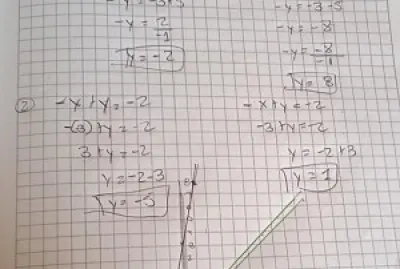 -y = 2
-1
y = -2
-y = -3-5
-y = -8
-y = -8
-1
y = 8
② -x+y = -2
-(3)+y = -2
3+y = -2
y = -2-3
y = -5
-x+y = -2
-3+y = -2
y = -2+3
y = 1